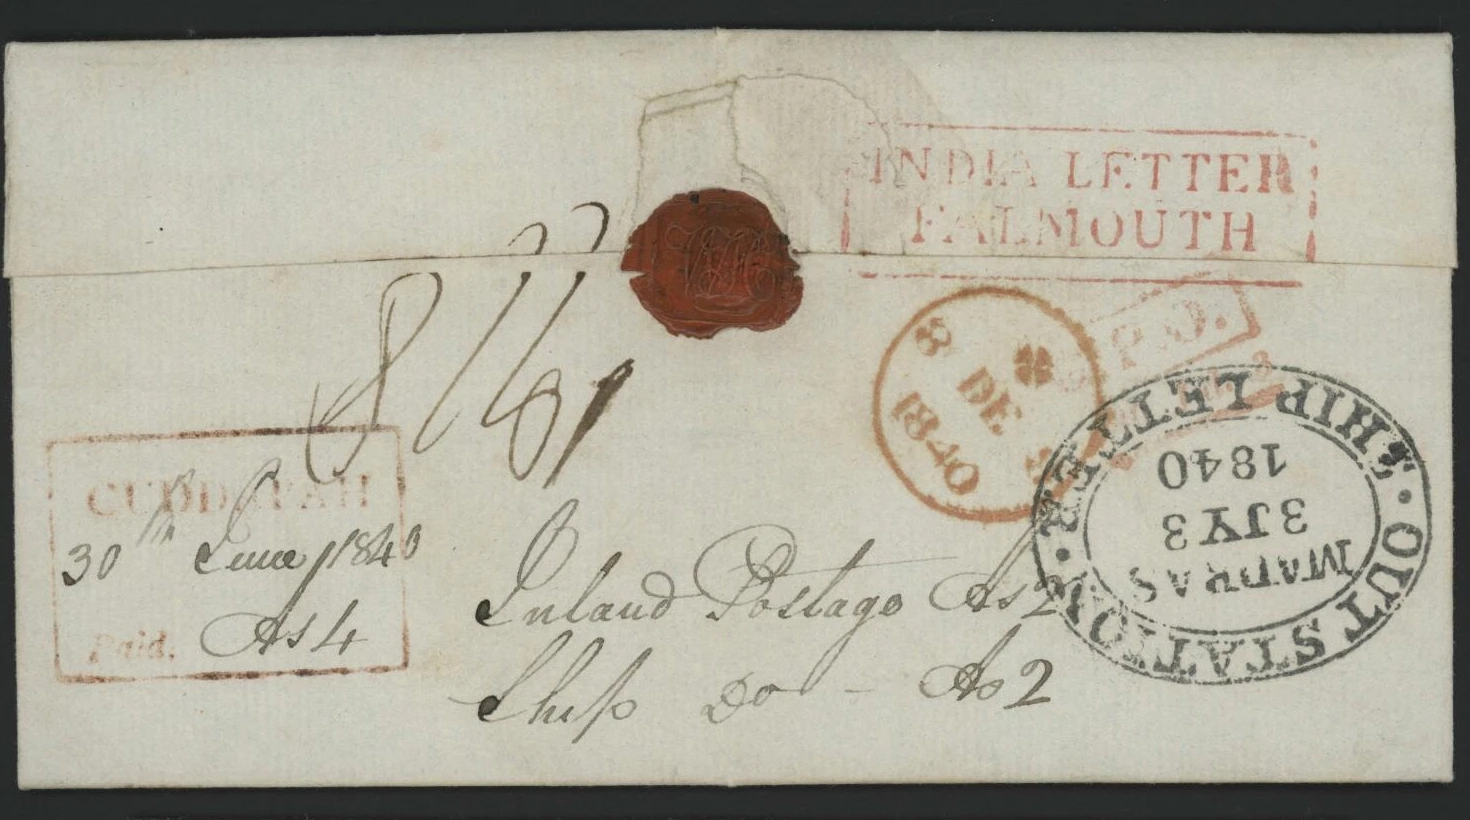 INDIA LETTER
FALMOUTH
8
DE
1840
P.O.
CUDDAPAH
30th June 1840
Paid. As 4
Inland Postage As 2
Ship Do - As 2
OUT STATION · SHIP LETTER ·
MADRAS
3 JY 3
1840